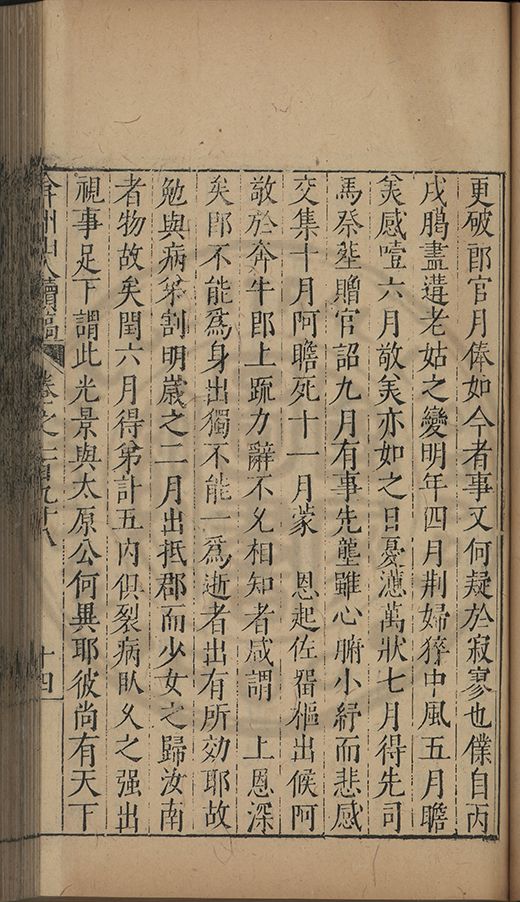 更破郎官月俸如今者事又何疑於寂寥也僕自丙
戌臈盡遘老姑之變明年四月荆婦猝中風五月瞻
美感噎六月敬美亦如之日憂懣萬狀七月得先司
馬祭塟贈官詔九月有事先壟雖心腑小紓而悲感
交集十月阿瞻死十一月蒙　恩起佐畱樞出候阿
敬於奔牛郎上疏力辭不允相知者咸謂　上恩深
矣郎不能爲身出獨不能一爲逝者出有所効耶故
勉與病弟割明歲之二月出抵郡而少女之歸汝南
者物故矣閏六月得弟訃五内俱裂病臥久之强出
視事足下謂此光景與太原公何異耶彼尚有天下
弇州山人續稿 卷之一百九十八 十四